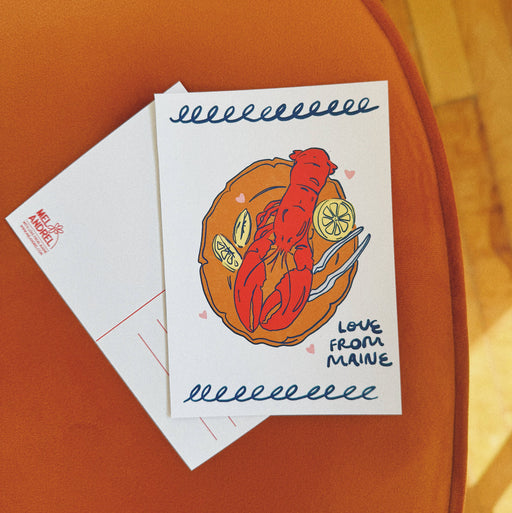 LOVE
FROM
MAINE
MEL
ANDREL